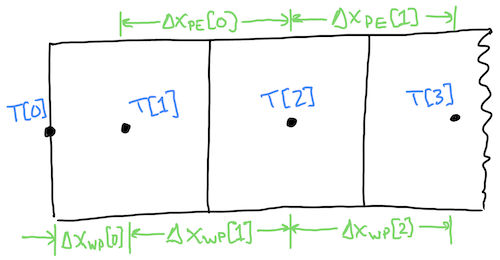 ΔX_PE[0] ΔX_PE[1]
T[0] T[1] T[2] T[3]
ΔX_WP[0] ΔX_WP[1] ΔX_WP[2]